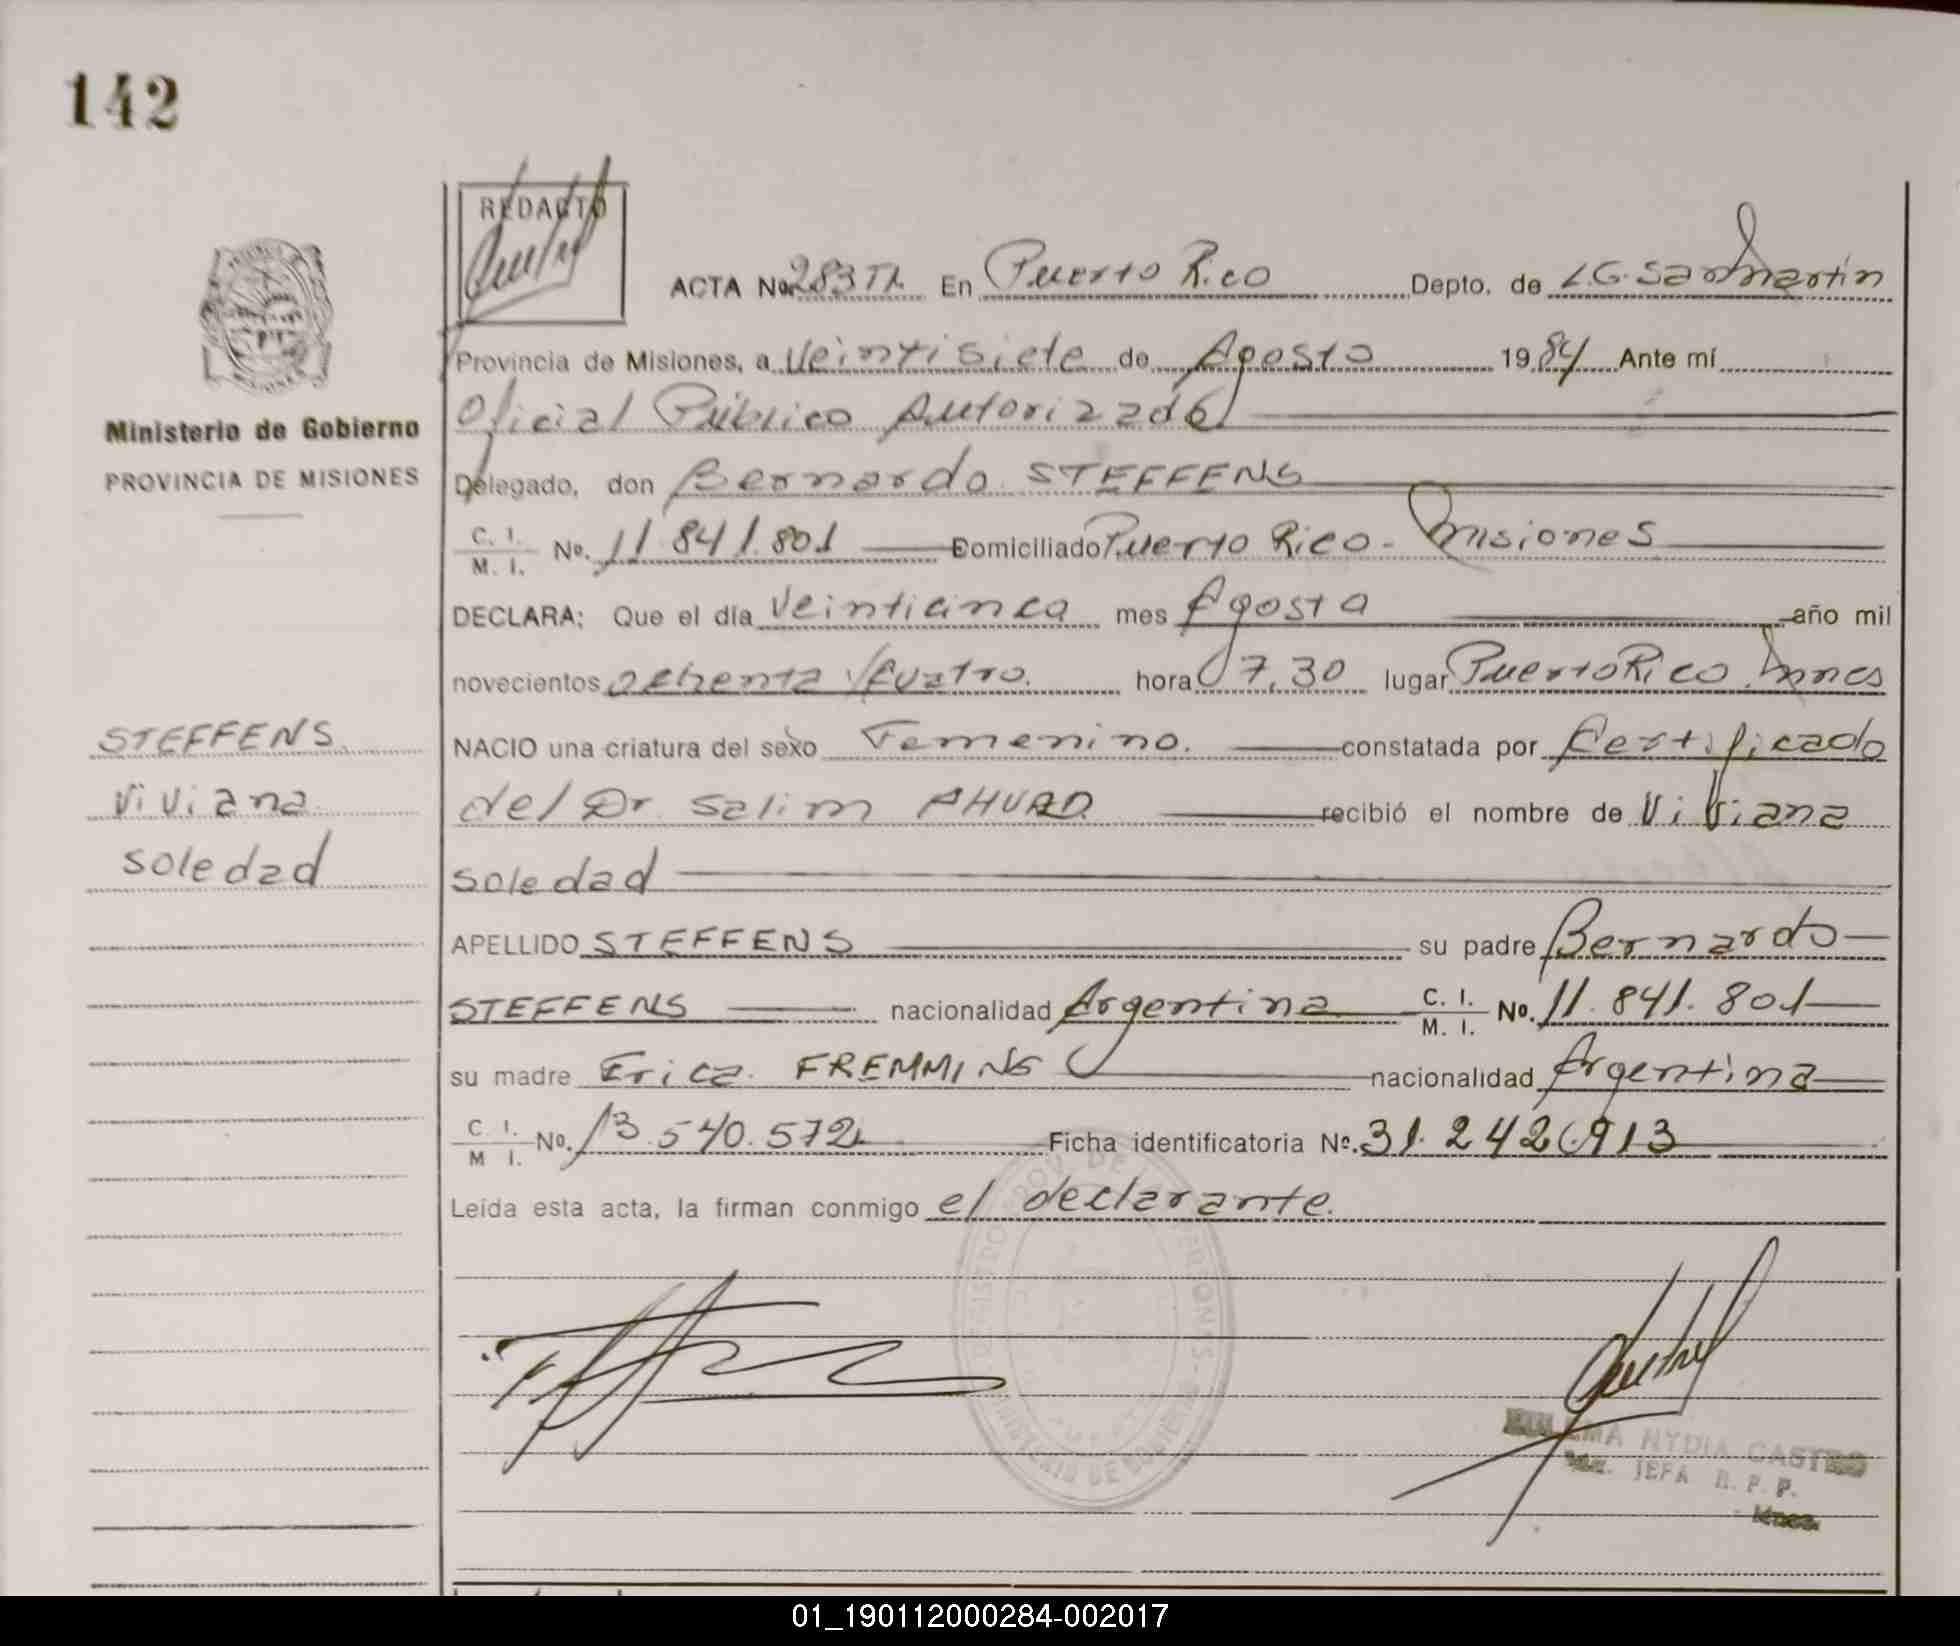 142
REDACTO
ACTA No. 283 TI. En Puerto Rico Depto. de L.G. San Martín
Provincia de Misiones, a Veintisiete de Agosto 1984 Ante mí
Oficial Público Autorizado
Ministerio de Gobierno
PROVINCIA DE MISIONES
Delegado, don Bernardo STEFFENS
C. I. M. I. No. 11.841.801 Domiciliado Puerto Rico - Misiones
DECLARA: Que el día Veinticinco mes Agosto año mil
novecientos ochenta y cuatro. hora 07,30 lugar Puerto Rico. Mnes
STEFFENS
Viviana
Soledad
NACIO una criatura del sexo Femenino. constatada por Certificado
del Dr. Salim AHUAD. recibió el nombre de Viviana
Soledad
APELLIDO STEFFENS su padre Bernardo
STEFFENS nacionalidad Argentina C. I. M. I. No. 11.841.801
su madre Erica FREMMING nacionalidad Argentina
C. I. M I. No. 13.540.572 Ficha identificatoria No. 31.242.913
Leída esta acta, la firman conmigo el declarante.
NYDIA CASTRO
JEFA R. P. P.
Mnes.
01_190112000284-002017